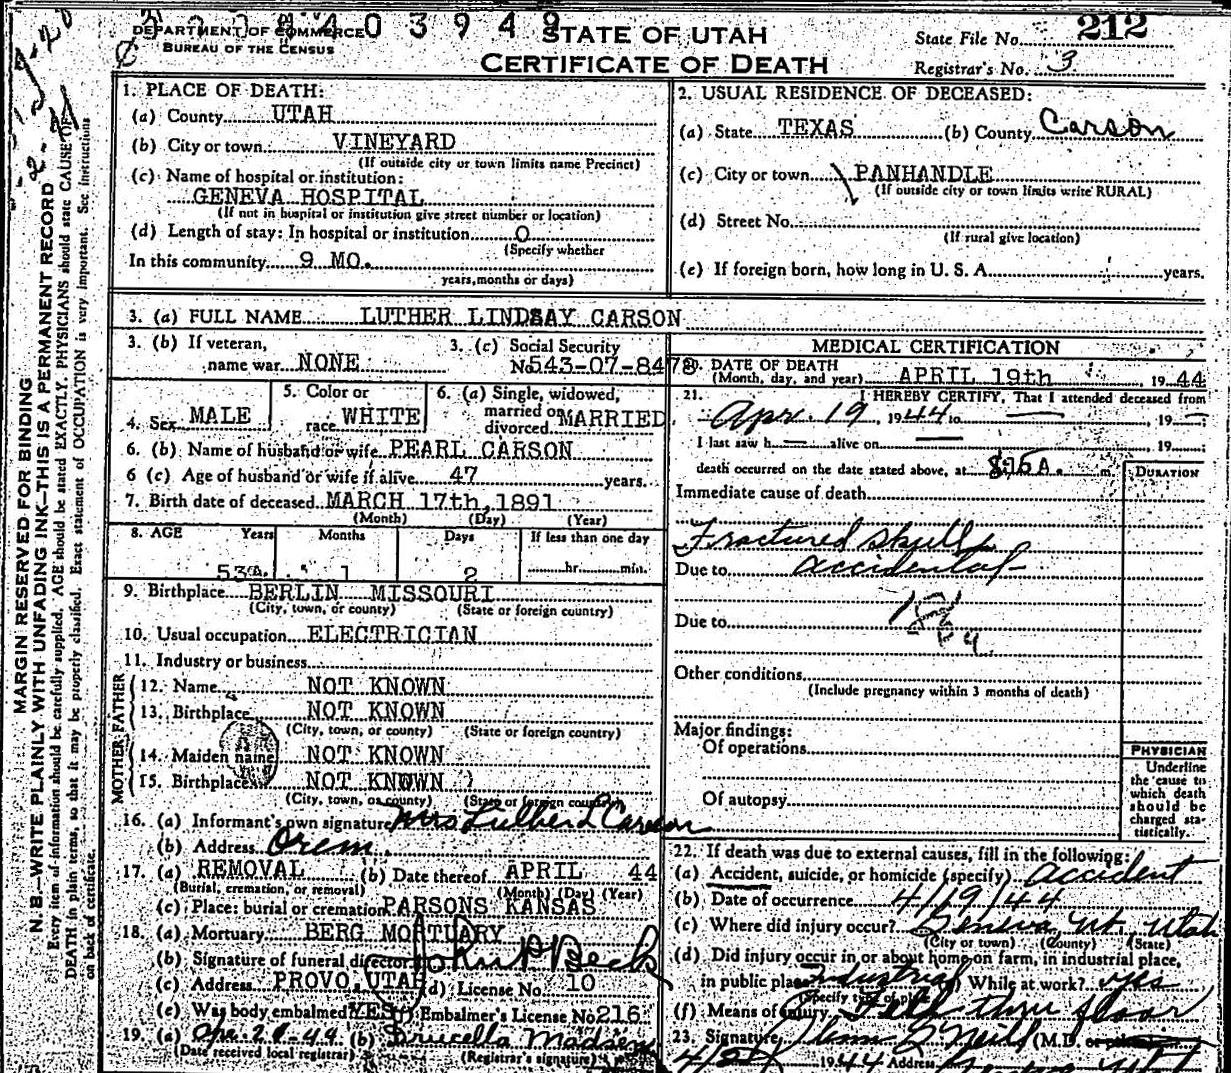 0 3 9 4 9
DEPARTMENT OF COMMERCE
BUREAU OF THE CENSUS
STATE OF UTAH
CERTIFICATE OF DEATH
State File No. 212
Registrar's No. 3
MARGIN RESERVED FOR BINDING
N. B.—WRITE PLAINLY WITH UNFADING INK—THIS IS A PERMANENT RECORD
Every item of information should be carefully supplied. AGE should be stated EXACTLY. PHYSICIANS should state CAUSE OF
DEATH in plain terms, so that it may be properly classified. Exact statement of OCCUPATION is very important. See instructions
on back of certificate.
1. PLACE OF DEATH:
(a) County UTAH
(b) City or town VINEYARD
(If outside city or town limits name Precinct)
(c) Name of hospital or institution:
GENEVA HOSPITAL
(If not in hospital or institution give street number or location)
(d) Length of stay: In hospital or institution 0
(Specify whether
In this community 9 MO.
years, months or days)
2. USUAL RESIDENCE OF DECEASED:
(a) State TEXAS (b) County Carson
(c) City or town PANHANDLE
(If outside city or town limits write RURAL)
(d) Street No.
(If rural give location)
(e) If foreign born, how long in U. S. A. years.
3. (a) FULL NAME LUTHER LINDSAY CARSON
3. (b) If veteran, 3. (c) Social Security
name war NONE No. 543-07-8478
4. Sex MALE
5. Color or
race WHITE
6. (a) Single, widowed,
married or
divorced MARRIED
6. (b) Name of husband or wife PEARL CARSON
6 (c) Age of husband or wife if alive 47 years.
7. Birth date of deceased MARCH 17th, 1891
(Month) (Day) (Year)
8. AGE Years Months Days If less than one day
53 1 2 hr. min.
9. Birthplace BERLIN MISSOURI
(City, town, or county) (State or foreign country)
10. Usual occupation ELECTRICIAN
11. Industry or business
FATHER
12. Name NOT KNOWN
13. Birthplace NOT KNOWN
(City, town, or county) (State or foreign country)
MOTHER
14. Maiden name NOT KNOWN
15. Birthplace NOT KNOWN
(City, town, or county) (State or foreign country)
16. (a) Informant's own signature Mrs Luther L Carson
(b) Address Orem
17. (a) REMOVAL (b) Date thereof APRIL 44
(Burial, cremation, or removal) (Month) (Day) (Year)
(c) Place: burial or cremation PARSONS KANSAS
18. (a) Mortuary BERG MORTUARY
(b) Signature of funeral director John P Beck
(c) Address PROVO, UTAH (d) License No. 10
(e) Was body embalmed? YES Embalmer's License No. 216
19. (a) 44 (b) Madsen
(Date received local registrar) (Registrar's signature)
MEDICAL CERTIFICATION
20. DATE OF DEATH
(Month, day, and year) APRIL 19th 1944
21. I HEREBY CERTIFY, That I attended deceased from
Apr. 19 1944 to — , 19 —
I last saw h — alive on — 19
death occurred on the date stated above, at 8:15 A. m.
DURATION
Immediate cause of death
Fractured skull
Due to accidental
Due to
Other conditions
(Include pregnancy within 3 months of death)
Major findings:
Of operations
Of autopsy
PHYSICIAN
Underline
the cause to
which death
should be
charged sta-
tistically.
22. If death was due to external causes, fill in the following:
(a) Accident, suicide, or homicide (specify) Accident
(b) Date of occurrence 4/19/44
(c) Where did injury occur? Geneva, Ut. Utah
(City or town) (County) (State)
(d) Did injury occur in or about home, on farm, in industrial place,
in public place? Industrial While at work? yes
(Specify type of place)
(f) Means of injury Fell thru floor
23. Signature (M.D.
1944 Address